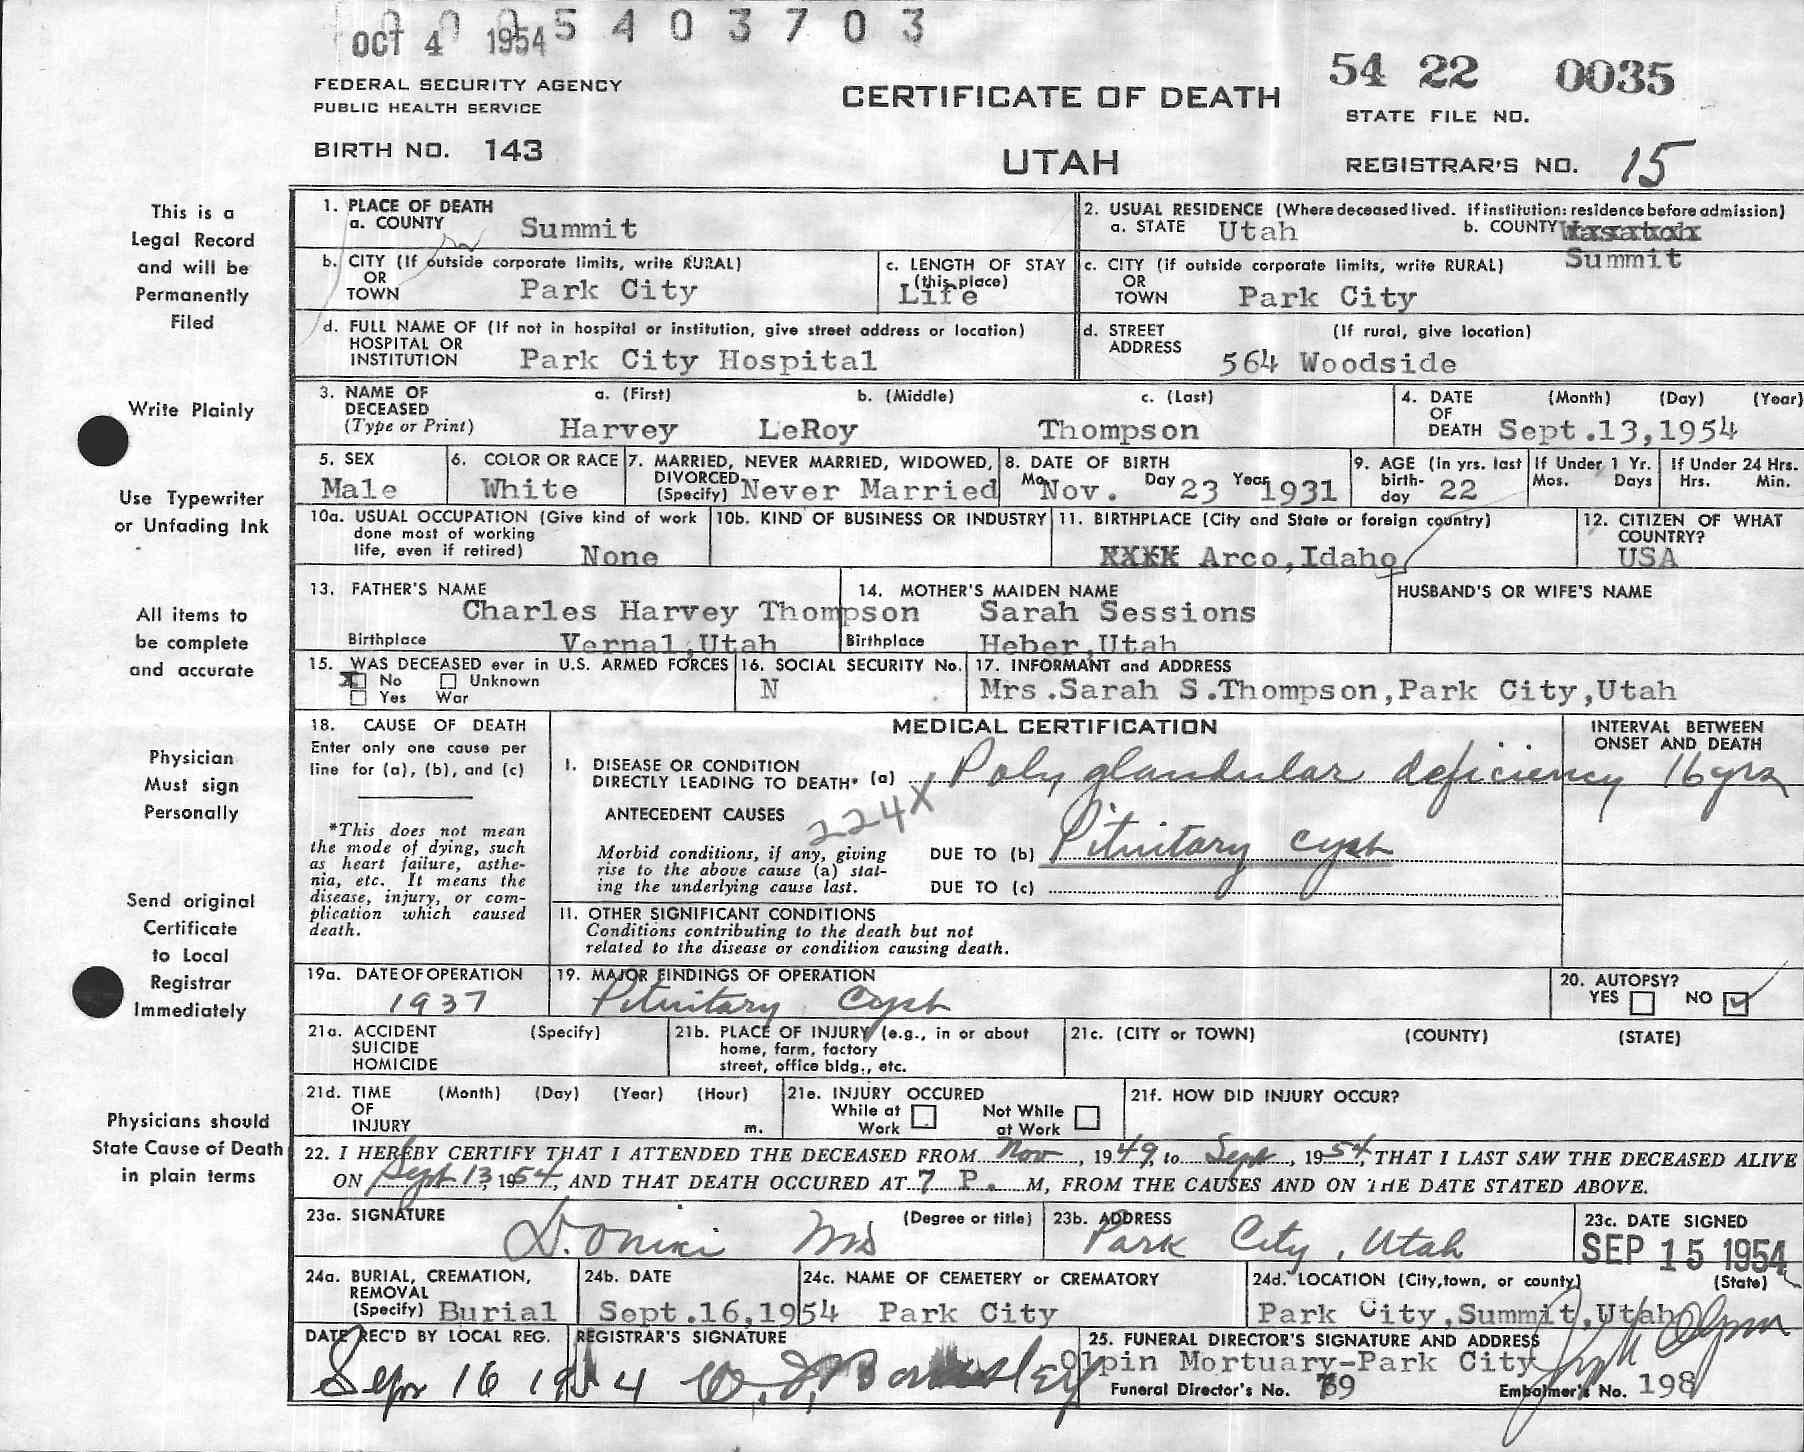 0005403703
OCT 4 1954
FEDERAL SECURITY AGENCY
PUBLIC HEALTH SERVICE
BIRTH NO. 143
CERTIFICATE OF DEATH
UTAH
54 22 0035
STATE FILE NO.
REGISTRAR'S NO. 15
This is a
Legal Record
and will be
Permanently
Filed
Write Plainly
Use Typewriter
or Unfading Ink
All items to
be complete
and accurate
Physician
Must sign
Personally
Send original
Certificate
to Local
Registrar
Immediately
Physicians should
State Cause of Death
in plain terms
1. PLACE OF DEATH
a. COUNTY Summit
2. USUAL RESIDENCE (Where deceased lived. If institution: residence before admission)
a. STATE Utah b. COUNTY Wasatch
Summit
b. CITY (If outside corporate limits, write RURAL)
OR
TOWN Park City
c. LENGTH OF STAY
(this place)
Life
c. CITY (if outside corporate limits, write RURAL)
OR
TOWN Park City
d. FULL NAME OF (If not in hospital or institution, give street address or location)
HOSPITAL OR
INSTITUTION Park City Hospital
d. STREET (If rural, give location)
ADDRESS 564 Woodside
3. NAME OF a. (First) b. (Middle) c. (Last)
DECEASED
(Type or Print) Harvey LeRoy Thompson
4. DATE (Month) (Day) (Year)
OF
DEATH Sept.13,1954
5. SEX
Male
6. COLOR OR RACE
White
7. MARRIED, NEVER MARRIED, WIDOWED,
DIVORCED
(Specify) Never Married
8. DATE OF BIRTH
Mo. Nov. Day 23 Year 1931
9. AGE (In yrs. last
birth-
day 22
If Under 1 Yr.
Mos. Days
If Under 24 Hrs.
Hrs. Min.
10a. USUAL OCCUPATION (Give kind of work
done most of working
life, even if retired) None
10b. KIND OF BUSINESS OR INDUSTRY
11. BIRTHPLACE (City and State or foreign country)
XXXX Arco,Idaho
12. CITIZEN OF WHAT
COUNTRY?
USA
13. FATHER'S NAME
Charles Harvey Thompson
Birthplace Vernal,Utah
14. MOTHER'S MAIDEN NAME
Sarah Sessions
Birthplace Heber,Utah
HUSBAND'S OR WIFE'S NAME
15. WAS DECEASED ever in U.S. ARMED FORCES
X No Unknown
Yes War
16. SOCIAL SECURITY No.
N
17. INFORMANT and ADDRESS
Mrs.Sarah S.Thompson,Park City,Utah
18. CAUSE OF DEATH
Enter only one cause per
line for (a), (b), and (c)
*This does not mean
the mode of dying, such
as heart failure, asthe-
nia, etc. It means the
disease, injury, or com-
plication which caused
death.
MEDICAL CERTIFICATION
INTERVAL BETWEEN
ONSET AND DEATH
I. DISEASE OR CONDITION
DIRECTLY LEADING TO DEATH* (a) Poly glandular deficiency 16 yrs
224X
ANTECEDENT CAUSES
Morbid conditions, if any, giving
rise to the above cause (a) stat-
ing the underlying cause last.
DUE TO (b) Pituitary Cyst
DUE TO (c)
II. OTHER SIGNIFICANT CONDITIONS
Conditions contributing to the death but not
related to the disease or condition causing death.
19a. DATE OF OPERATION
1937
19. MAJOR FINDINGS OF OPERATION
Pituitary Cyst
20. AUTOPSY?
YES NO ✓
21a. ACCIDENT (Specify)
SUICIDE
HOMICIDE
21b. PLACE OF INJURY (e.g., in or about
home, farm, factory
street, office bldg., etc.
21c. (CITY or TOWN) (COUNTY) (STATE)
21d. TIME (Month) (Day) (Year) (Hour)
OF
INJURY m.
21e. INJURY OCCURED
While at Work Not While at Work
21f. HOW DID INJURY OCCUR?
22. I HEREBY CERTIFY THAT I ATTENDED THE DECEASED FROM Nov, 1949, to Sept, 1954, THAT I LAST SAW THE DECEASED ALIVE
ON Sept 13, 1954, AND THAT DEATH OCCURED AT 7 P. M, FROM THE CAUSES AND ON THE DATE STATED ABOVE.
23a. SIGNATURE (Degree or title)
MD
23b. ADDRESS
Park City, Utah
23c. DATE SIGNED
SEP 15 1954
24a. BURIAL, CREMATION,
REMOVAL
(Specify) Burial
24b. DATE
Sept.16,1954
24c. NAME OF CEMETERY or CREMATORY
Park City
24d. LOCATION (City,town, or county) (State)
Park City,Summit,Utah
DATE REC'D BY LOCAL REG.
Sept 16 1954
REGISTRAR'S SIGNATURE
25. FUNERAL DIRECTOR'S SIGNATURE AND ADDRESS
Olpin Mortuary-Park City
Funeral Director's No. 79 Embalmer's No. 198